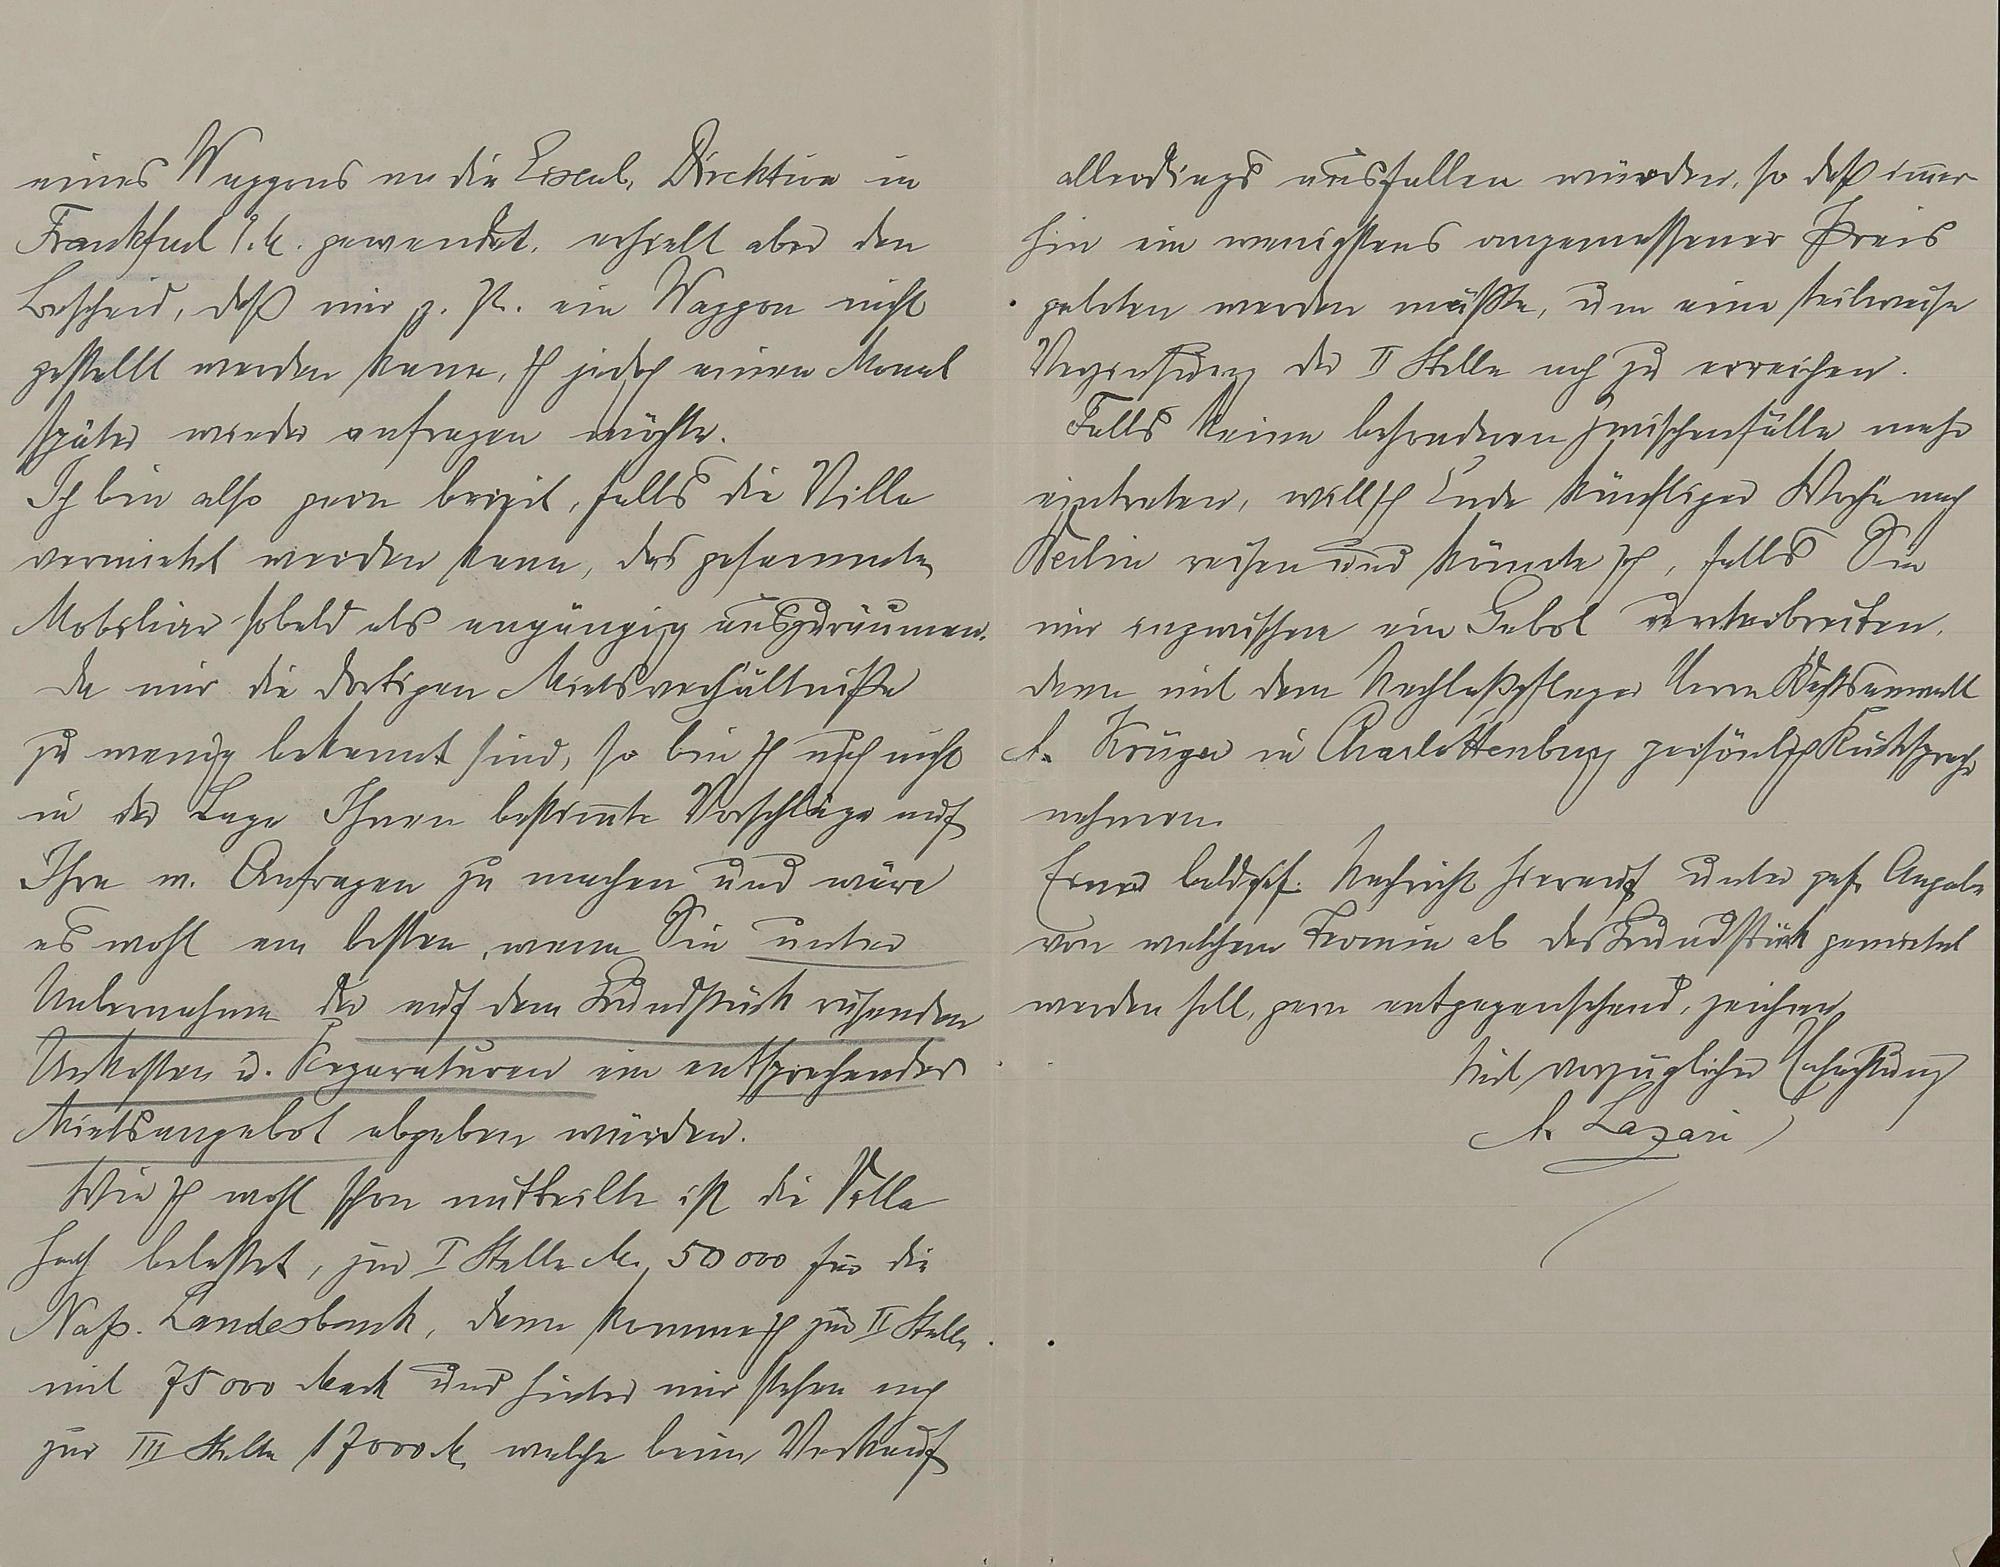 eines Waggons an die Eisenb. Direktion in
Frankfurt a. M. gewendet, erhielt aber den
Bescheid, daß mir z. Zt. ein Waggon nicht
gestellt werden kann, ich jedoch einen Monat
später wieder anfragen möchte.
Ich bin also gern bereit, falls die Villa
vermietet werden kann, das gesammte
Mobiliar sobald als angängig auszuräumen.
Da mir die dortigen Mietsverhältniße
zu wenig bekannt sind, so bin ich auch nicht
in der Lage Ihnen bestimmte Vorschläge auf
Ihre w. Anfragen zu machen und wäre
es wohl am besten, wenn Sie unter
Uebernahme der auf dem Grundstück ruhenden
Unkosten u. Reparaturen ein entsprechendes
Mietsangebot abgeben würden.
Wie ich wohl schon mitteilte ist die Villa
hoch belastet, zur I Stelle M. 50 000 für die
Naß. Landesbank, dann komme ich zur II Stelle
mit 75 000 Mark und hinter mir stehen noch
zur III Stelle 17000 M. welche beim Verkauf
allerdings ausfallen würden, so daß immer
hin ein wenigstens angemessener Preis
geboten werden müßte, um eine teilweise
Verzinsung der II Stelle noch zu erreichen.
Falls keine besonderen Zwischenfälle mehr
eintreten, will ich Ende künftiger Woche nach
Berlin reisen und könnte ich, falls Sie
mir inzwischen ein Gebot unterbreiten,
dann mit dem Nachlaßpfleger Herrn Rechtsanwalt
A. Krüger in Charlottenburg persönlich Rücksprache
nehmen.
Ihrer baldgef. Nachricht hierauf unter gef. Angabe
von welchem Termin ab das Grundstück gemietet
werden soll, gern entgegensehend, zeichne
Mit vorzüglicher Hochachtung
A. Lazari